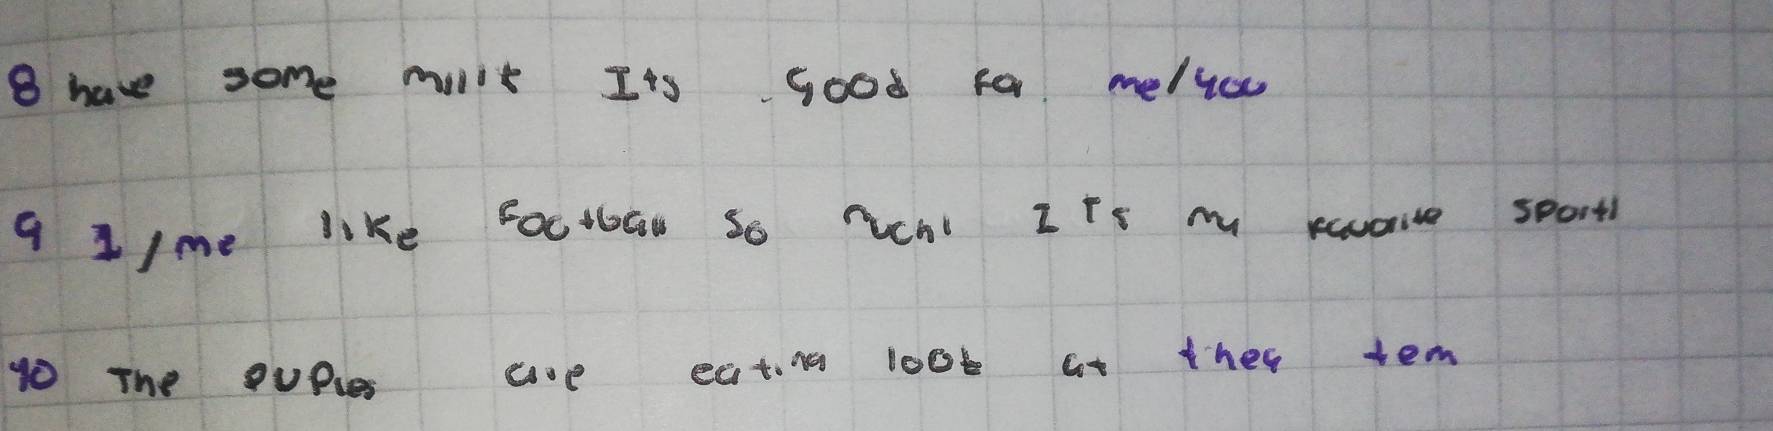 8 have some milk Its Good for me/you
9 I/me like Football so much! ITs my favorite sport!
10 The pupies are eating look at they tem